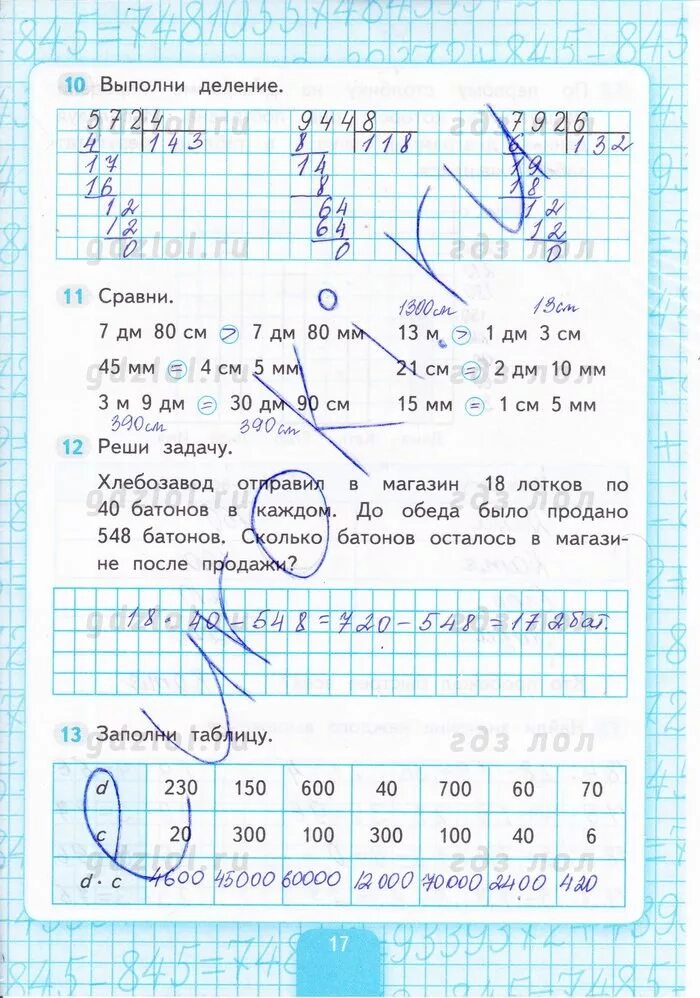 10 Выполни деление.
572 4 944 8 792 6
4 143 8 118 6 132
17 14 19
16 8 18
12 64 12
12 64 12
0 0 0
11 Сравни.
1300см 13см
7 дм 80 см > 7 дм 80 мм 13 м > 1 дм 3 см
45 мм = 4 см 5 мм 21 см = 2 дм 10 мм
3 м 9 дм = 30 дм 90 см 15 мм = 1 см 5 мм
390см 390см
12 Реши задачу.
Хлебозавод отправил в магазин 18 лотков по
40 батонов в каждом. До обеда было продано
548 батонов. Сколько батонов осталось в магази-
не после продажи?
18 · 40 – 548 = 720 – 548 = 172 бат.
13 Заполни таблицу.
d 230 150 600 40 700 60 70
c 20 300 100 300 100 40 6
d · c 4600 45000 60000 12000 70000 2400 420
17
gdzlol.ru
гдз лол